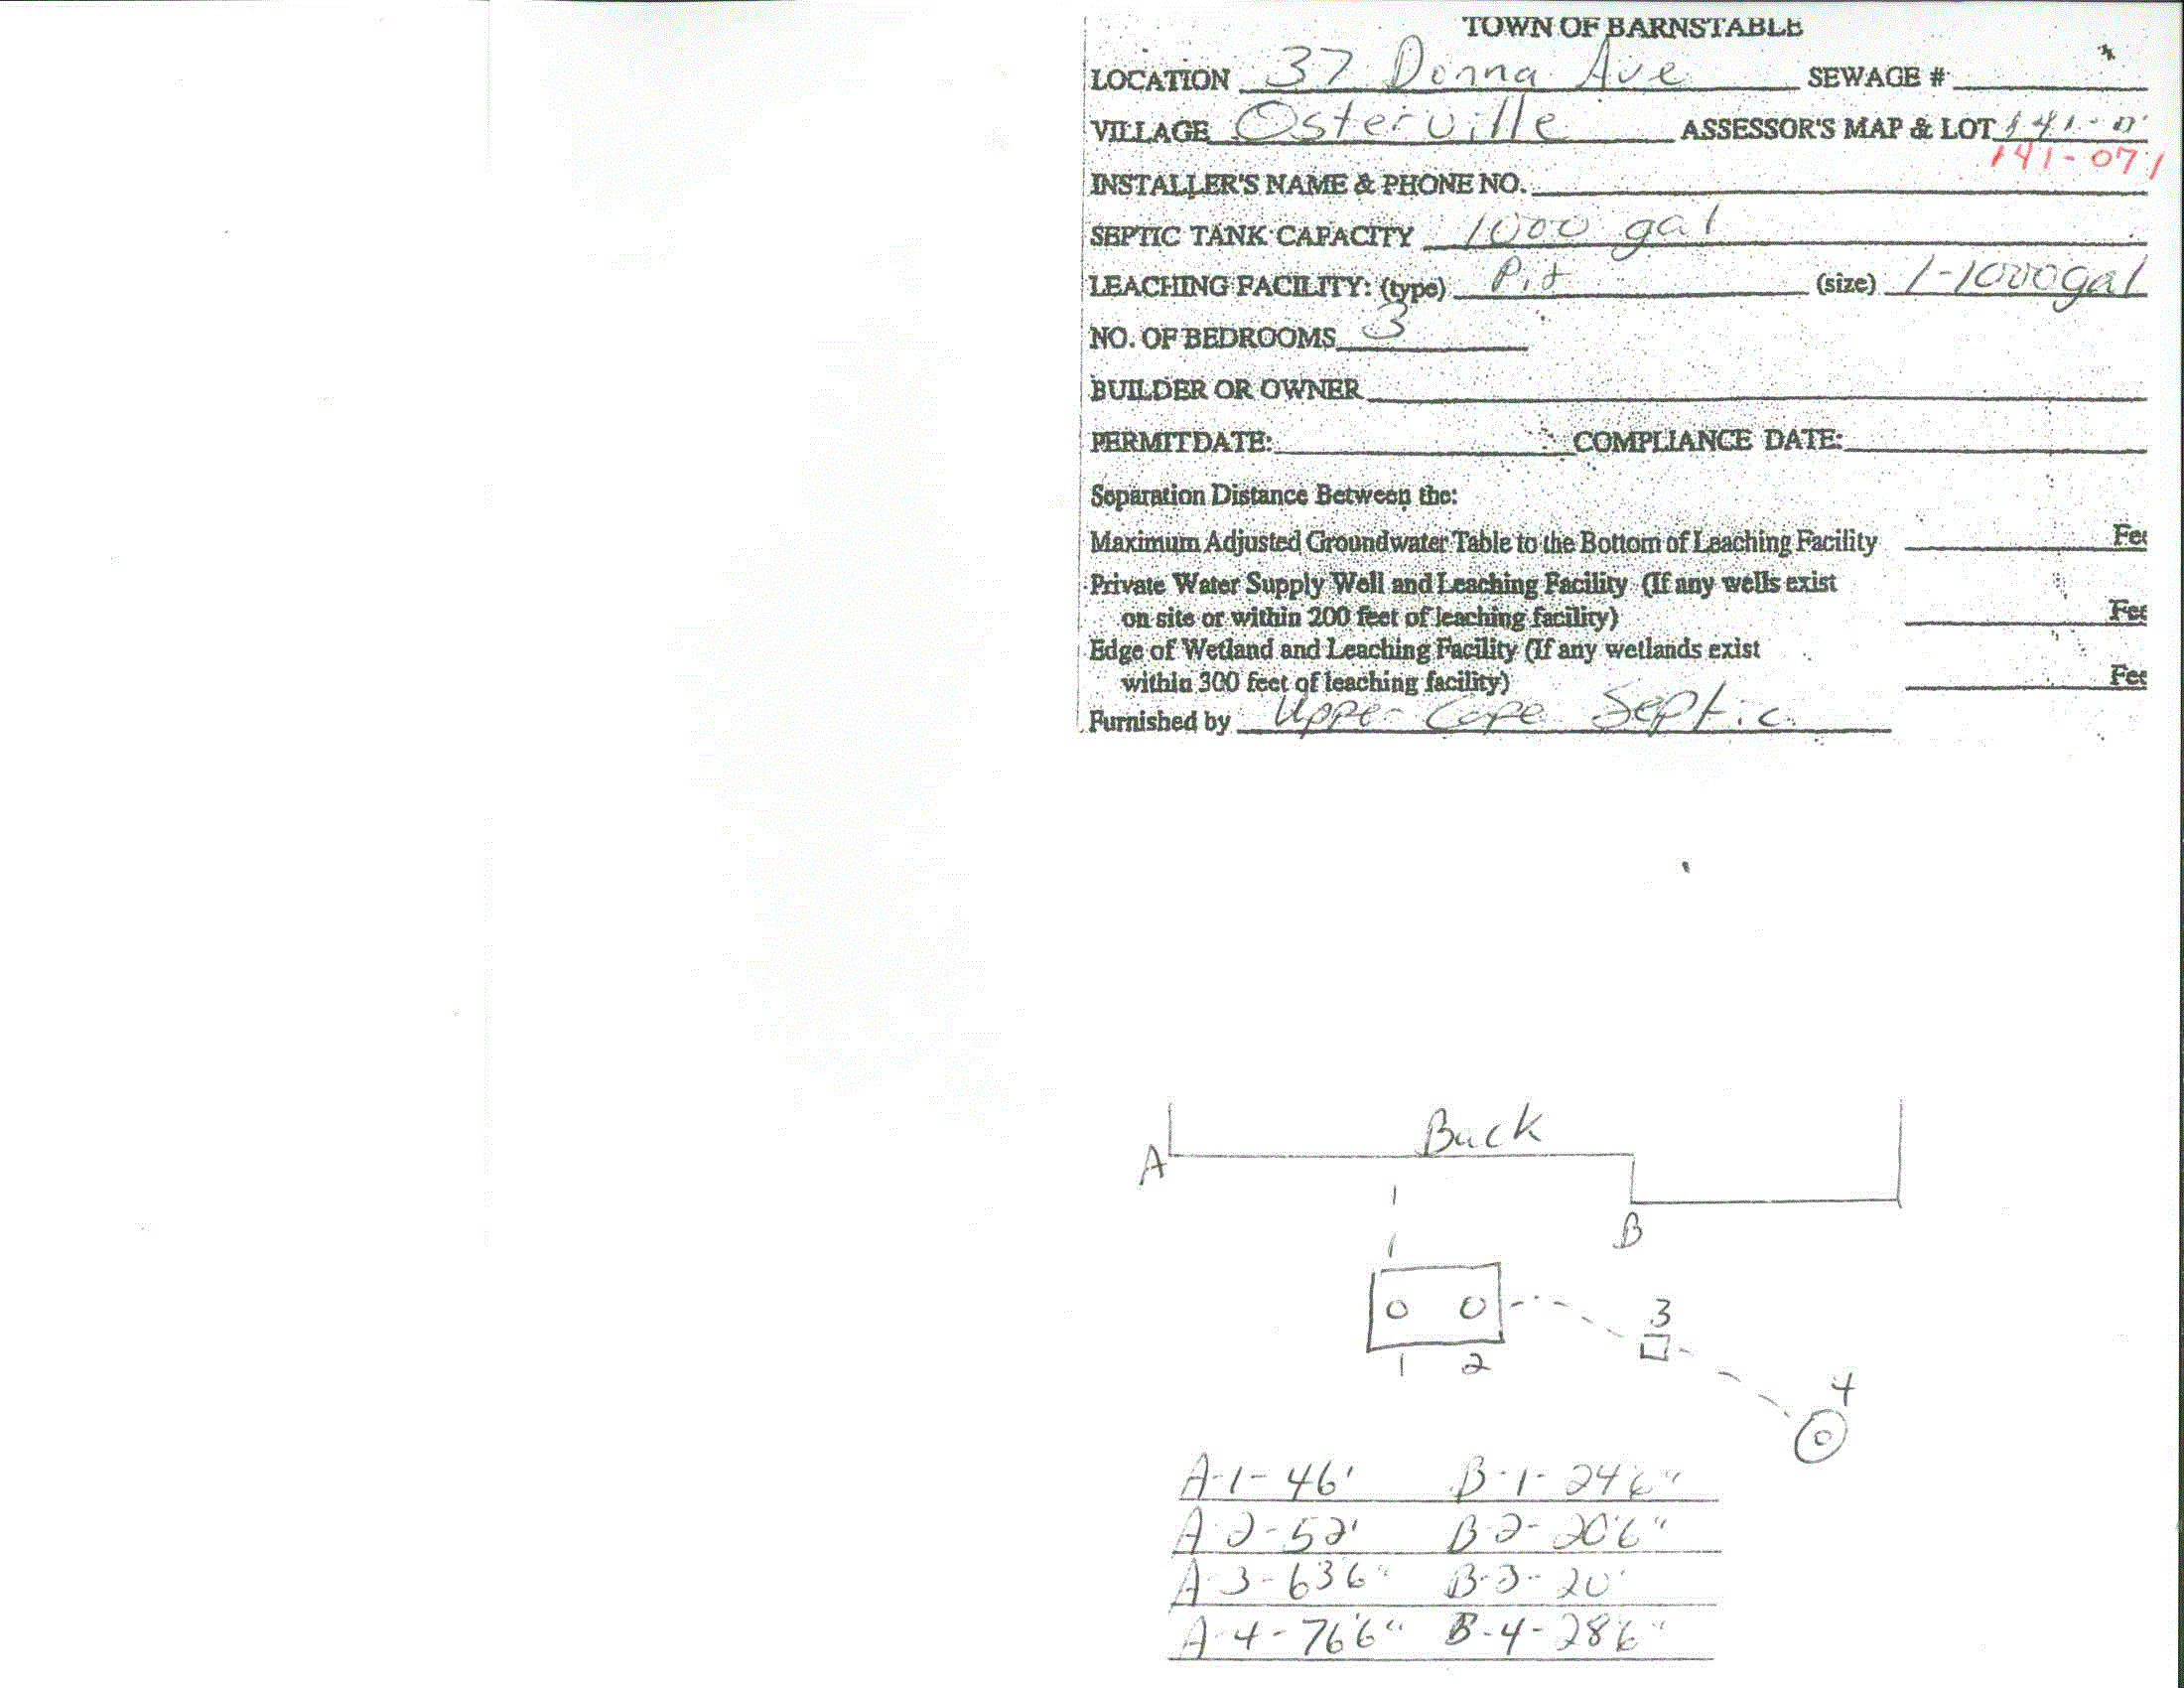 TOWN OF BARNSTABLE
LOCATION 37 Donna Ave SEWAGE #
VILLAGE Osterville ASSESSOR'S MAP & LOT 141-
141-071
INSTALLER'S NAME & PHONE NO.
SEPTIC TANK CAPACITY 1000 gal
LEACHING FACILITY: (type) Pit (size) 1-1000 gal
NO. OF BEDROOMS 3
BUILDER OR OWNER
PERMIT DATE: COMPLIANCE DATE:
Separation Distance Between the:
Maximum Adjusted Groundwater Table to the Bottom of Leaching Facility Fee
Private Water Supply Well and Leaching Facility (If any wells exist
on site or within 200 feet of leaching facility) Fee
Edge of Wetland and Leaching Facility (If any wetlands exist
within 300 feet of leaching facility) Fee
Furnished by Upper Cape Septic
Back
A
B
3
1 2
4
A-1-46' B-1-24'6"
A-2-52' B-2-20'6"
A-3-63'6" B-3-20'
A-4-76'6" B-4-28'6"